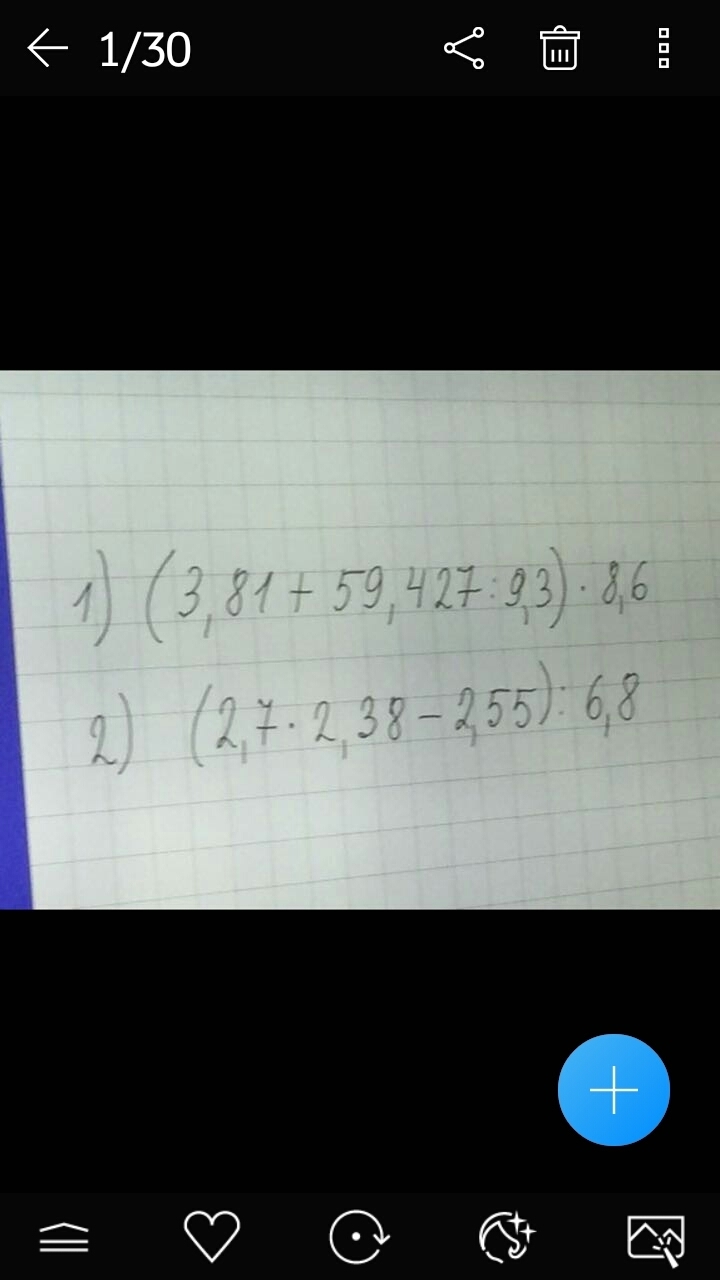 1/30
1) (3,81 + 59,427 : 9,3) · 8,6
2) (2,7 · 2,38 - 2,55) : 6,8